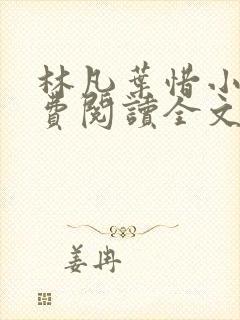 林凡葉惜小
費閱讀全文
姜冉